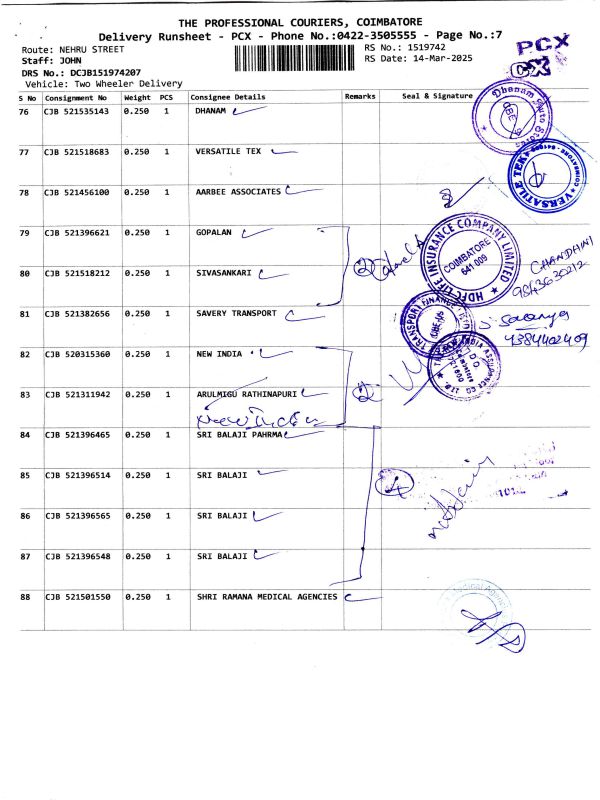 THE PROFESSIONAL COURIERS, COIMBATORE
Delivery Runsheet - PCX - Phone No.:0422-3505555 - Page No.:7
Route: NEHRU STREET
RS No.: 1519742
Staff: JOHN
RS Date: 14-Mar-2025
DRS No.: DCJB151974207
Vehicle: Two Wheeler Delivery
PCX
CX
S No Consignment No Weight PCS Consignee Details Remarks Seal & Signature
76 CJB 521535143 0.250 1 DHANAM
Dhanam Auto Stores
77 CJB 521518683 0.250 1 VERSATILE TEX
VERSATILE TEX
78 CJB 521456100 0.250 1 AARBEE ASSOCIATES
79 CJB 521396621 0.250 1 GOPALAN
2
HDFC LIFE INSURANCE COMPANY LIMITED
COIMBATORE
641 009
CHANDHINI
80 CJB 521518212 0.250 1 SIVASANKARI
81 CJB 521382656 0.250 1 SAVERY TRANSPORT
TRANSPORT FINANCE
Saranya
82 CJB 520315360 0.250 1 NEW INDIA
83 CJB 521311942 0.250 1 ARULMIGU RATHINAPURI
New India
2
84 CJB 521396465 0.250 1 SRI BALAJI PAHRMA
85 CJB 521396514 0.250 1 SRI BALAJI
4
86 CJB 521396565 0.250 1 SRI BALAJI
87 CJB 521396548 0.250 1 SRI BALAJI
88 CJB 521501550 0.250 1 SHRI RAMANA MEDICAL AGENCIES